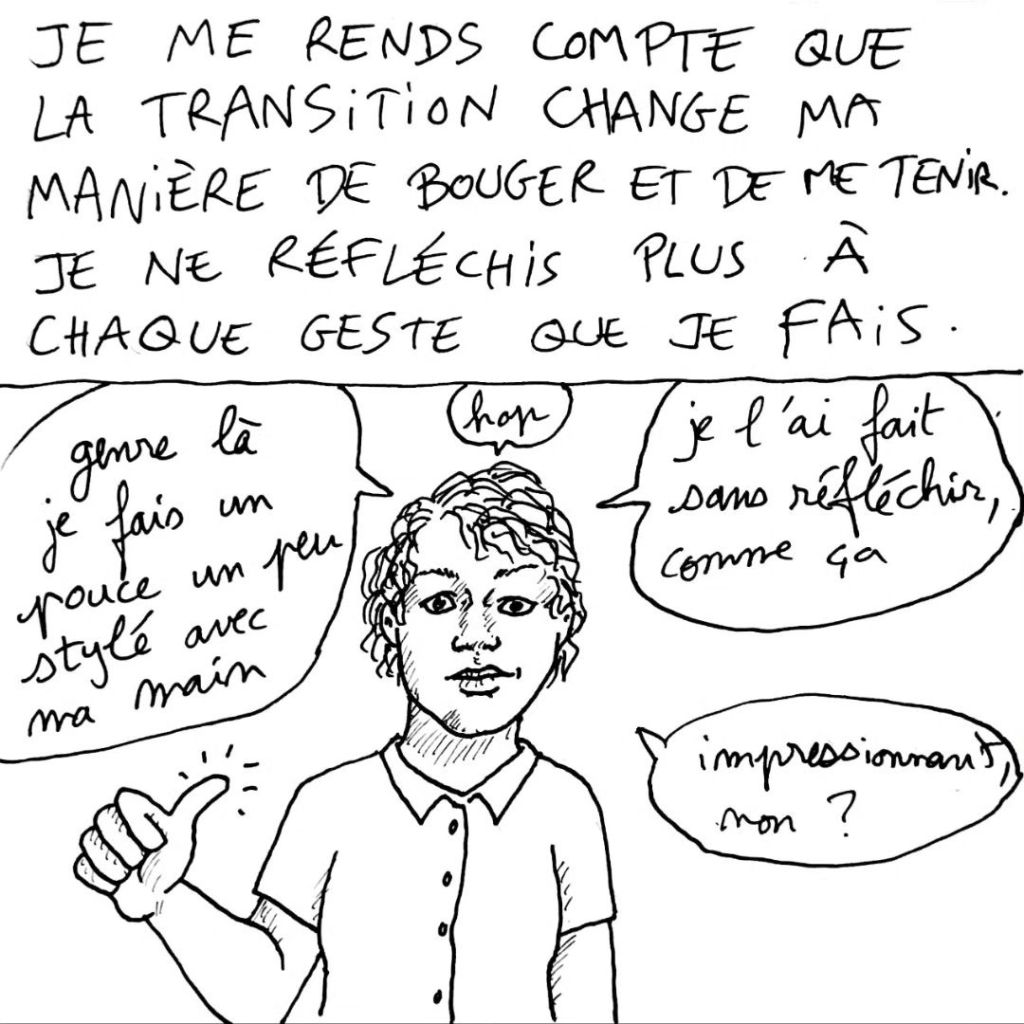 JE ME RENDS COMPTE QUE
LA TRANSITION CHANGE MA
MANIÈRE DE BOUGER ET DE ME TENIR.
JE NE RÉFLÉCHIS PLUS À
CHAQUE GESTE QUE JE FAIS.
genre là
je fais un
pouce un peu
stylé avec
ma main
hop
je l'ai fait
sans réfléchir,
comme ça
impressionnant,
non ?